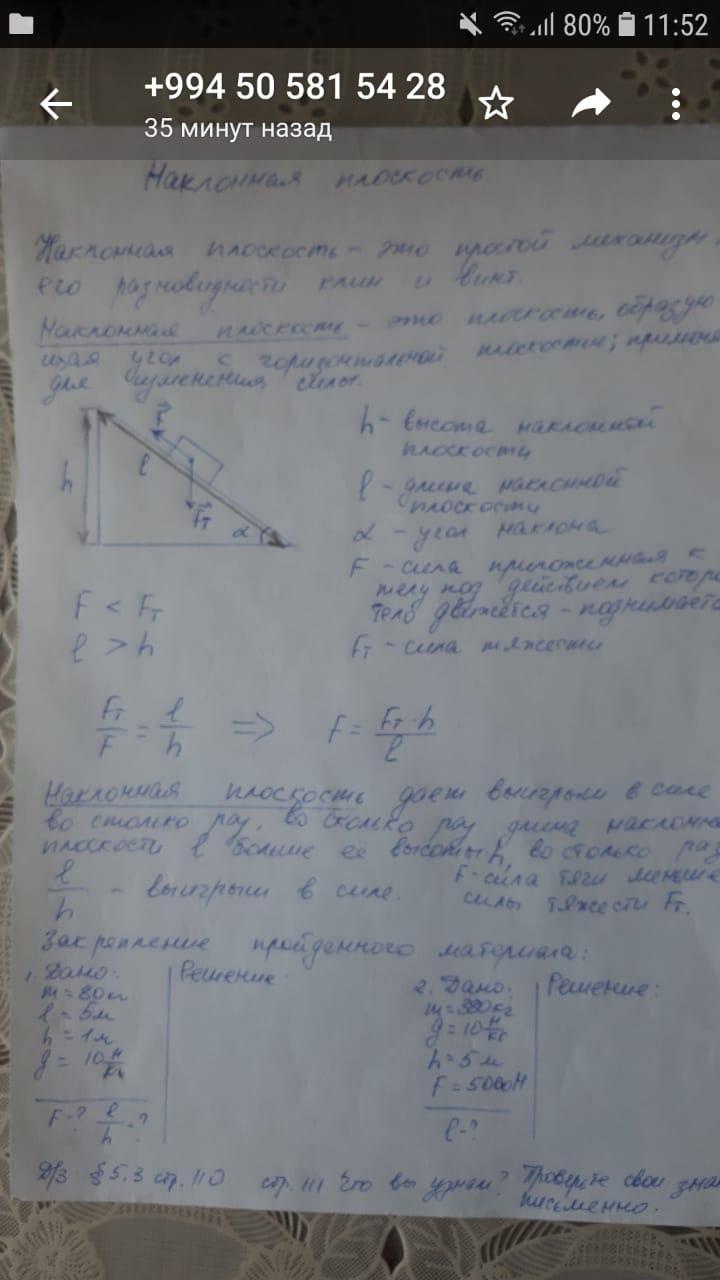 80% 11:52
+994 50 581 54 28
35 минут назад
Наклонная плоскость
Наклонная плоскость - это простой механизм
его разновидности клин и винт.
Наклонная плоскость - это плоскость, образую
щая угол с горизонтальной плоскостью; применя
для изменения силы.
h
l
F
Fт
α
h - высота наклонной
плоскости
l - длина наклонной
плоскости
α - угол наклона
F - сила приложенная к
телу под действием которо
тело движется - поднимает
Fт - сила тяжести
F < Fт
l > h
Fт/F = l/h => F = Fт·h/l
Наклонная плоскость дает выигрыш в силе
во столько раз, во сколько раз длина наклонно
плоскости l больше её высоты h, во столько раз
F-сила тяги меньше
силы тяжести Fт.
l/h - выигрыш в силе.
Закрепление пройденного материала:
1. Дано:
m = 80кг
l = 5м
h = 1м
g = 10 Н/кг
F-? l/h-?
Решение:
2. Дано:
g = 10 Н/кг
h = 5м
F = 5000Н
l-?
Решение:
Д/з § 5.3 стр. 110 стр. 111 Что вы узнали? Проверьте свои зна
письменно.